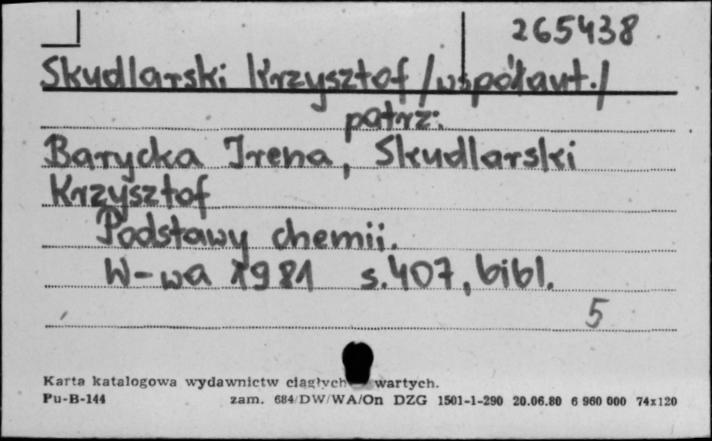 265438
Skudlarski Krzysztof /współaut./
patrz:
Barycka Irena, Skudlarski
Krzysztof
Podstawy chemii.
W-wa 1981 s.407, bibl.
5
Karta katalogowa wydawnictw ciągłych wartych.
Pu-B-144 zam. 684/DW/WA/On DZG 1501-1-290 20.06.80 6 960 000 74x120